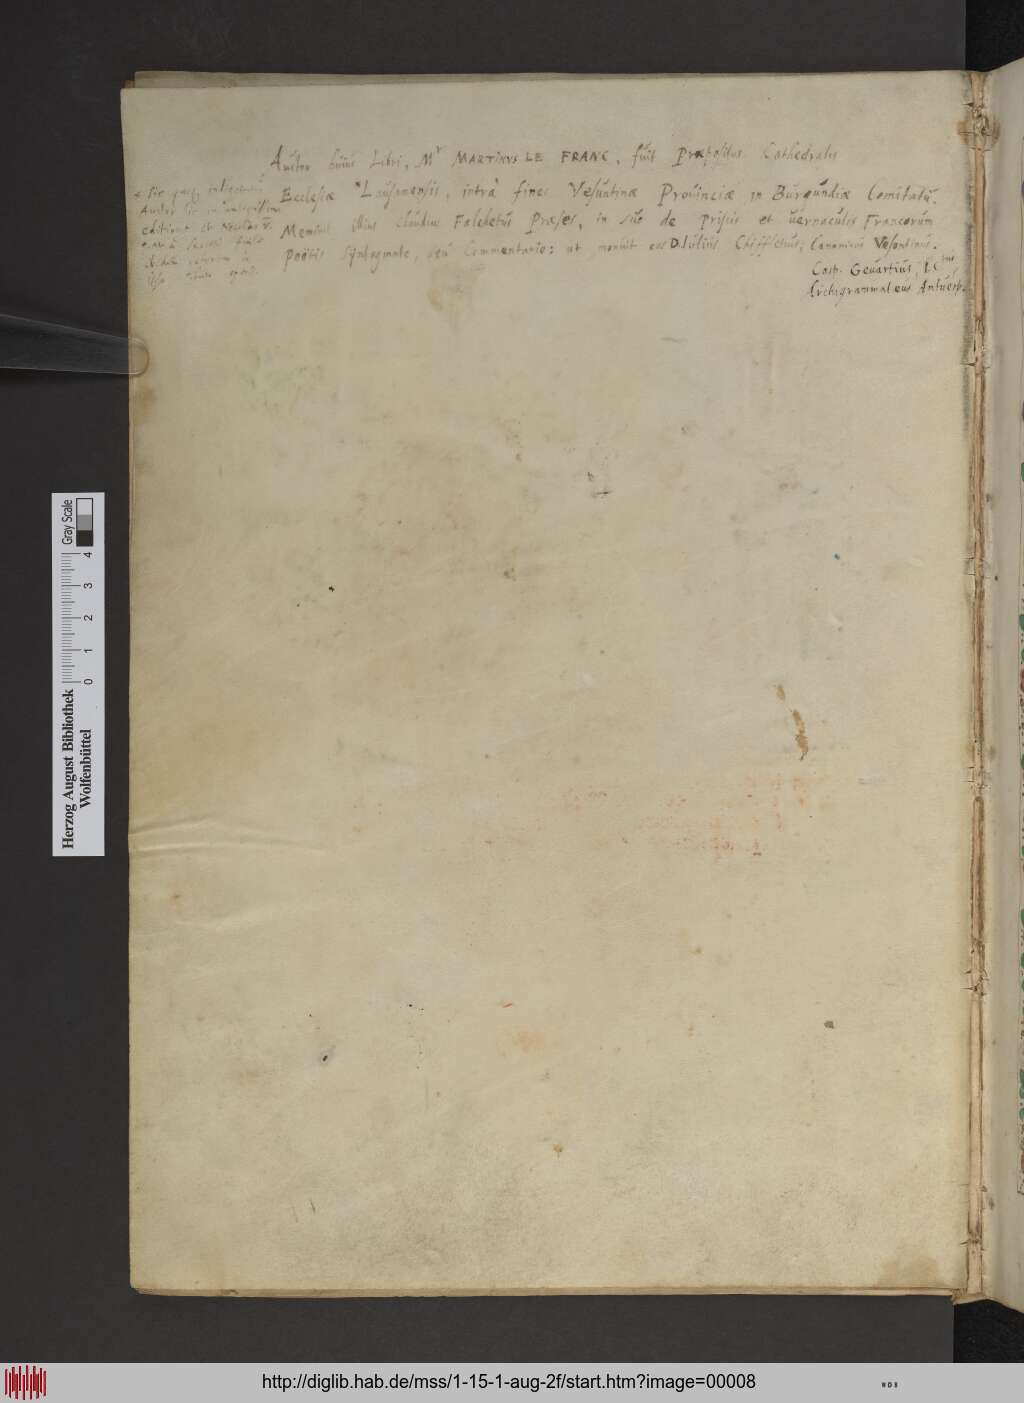 Auctor huius Libri, Mr MARTINVS LE FRANC, fuit Præpositus Cathedralis
Ecclesiæ Lausanensis, intrà fines Vesuntinæ Prouinciæ in Burgundiæ Comitatu.
Meminit illius Claudius Falchetus Præses, in suo de Priscis et vernaculis Francorum
Poëtis Syntagmate, seu Commentario: ut monuit eos D. Iulius Chiffletius, Canonicus Vesontinus.
Casp. Geuartius, I. Ctus
Archigrammatæus Antuerp.
Auctor
editione et
Herzog August Bibliothek
Wolfenbüttel
0 1 2 3 4
Gray Scale
http://diglib.hab.de/mss/1-15-1-aug-2f/start.htm?image=00008
WDB